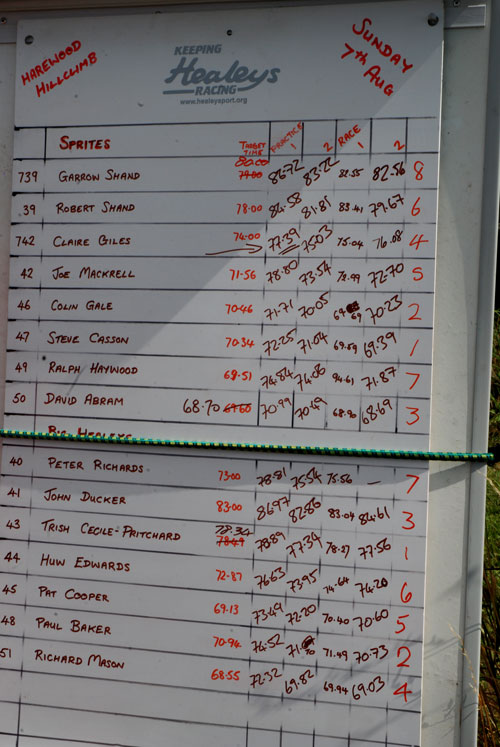 HAREWOOD HILLCLIMB
KEEPING
Healeys
RACING
www.healeysport.org
SUNDAY 7th AUG
SPRITES TARGET TIME PRACTICE 1 2 RACE 1 2
80.00
739 GARROW SHAND 79.00 86.72 83.22 82.55 82.56 8
39 ROBERT SHAND 78.00 84.58 81.81 83.41 79.67 6
742 CLAIRE GILES 74.00 77.39 75.03 75.04 76.08 4
42 JOE MACKRELL 71.56 78.80 73.54 72.70 5
46 COLIN GALE 70.46 71.71 70.05 69 70.23 2
47 STEVE CASSON 70.34 72.25 71.04 69.59 69.39 1
49 RALPH HAYWOOD 68.51 74.84 74.06 94.61 71.87 7
50 DAVID ABRAM 68.70 70.99 70.49 68.90 68.69 3
BIG HEALEYS
40 PETER RICHARDS 73.00 78.81 75.54 75.56 – 7
41 JOHN DUCKER 83.00 86.97 82.86 83.04 84.61 3
78.34
43 TRISH CECILE-PRITCHARD 78.49 78.89 77.34 78.27 77.56 1
44 HUW EDWARDS 72.87 76.63 73.95 74.64 74.20 6
45 PAT COOPER 69.13 73.49 72.20 70.40 70.60 5
48 PAUL BAKER 70.94 74.52 71.70 71.49 70.73 2
51 RICHARD MASON 68.55 72.32 69.82 69.94 69.03 4